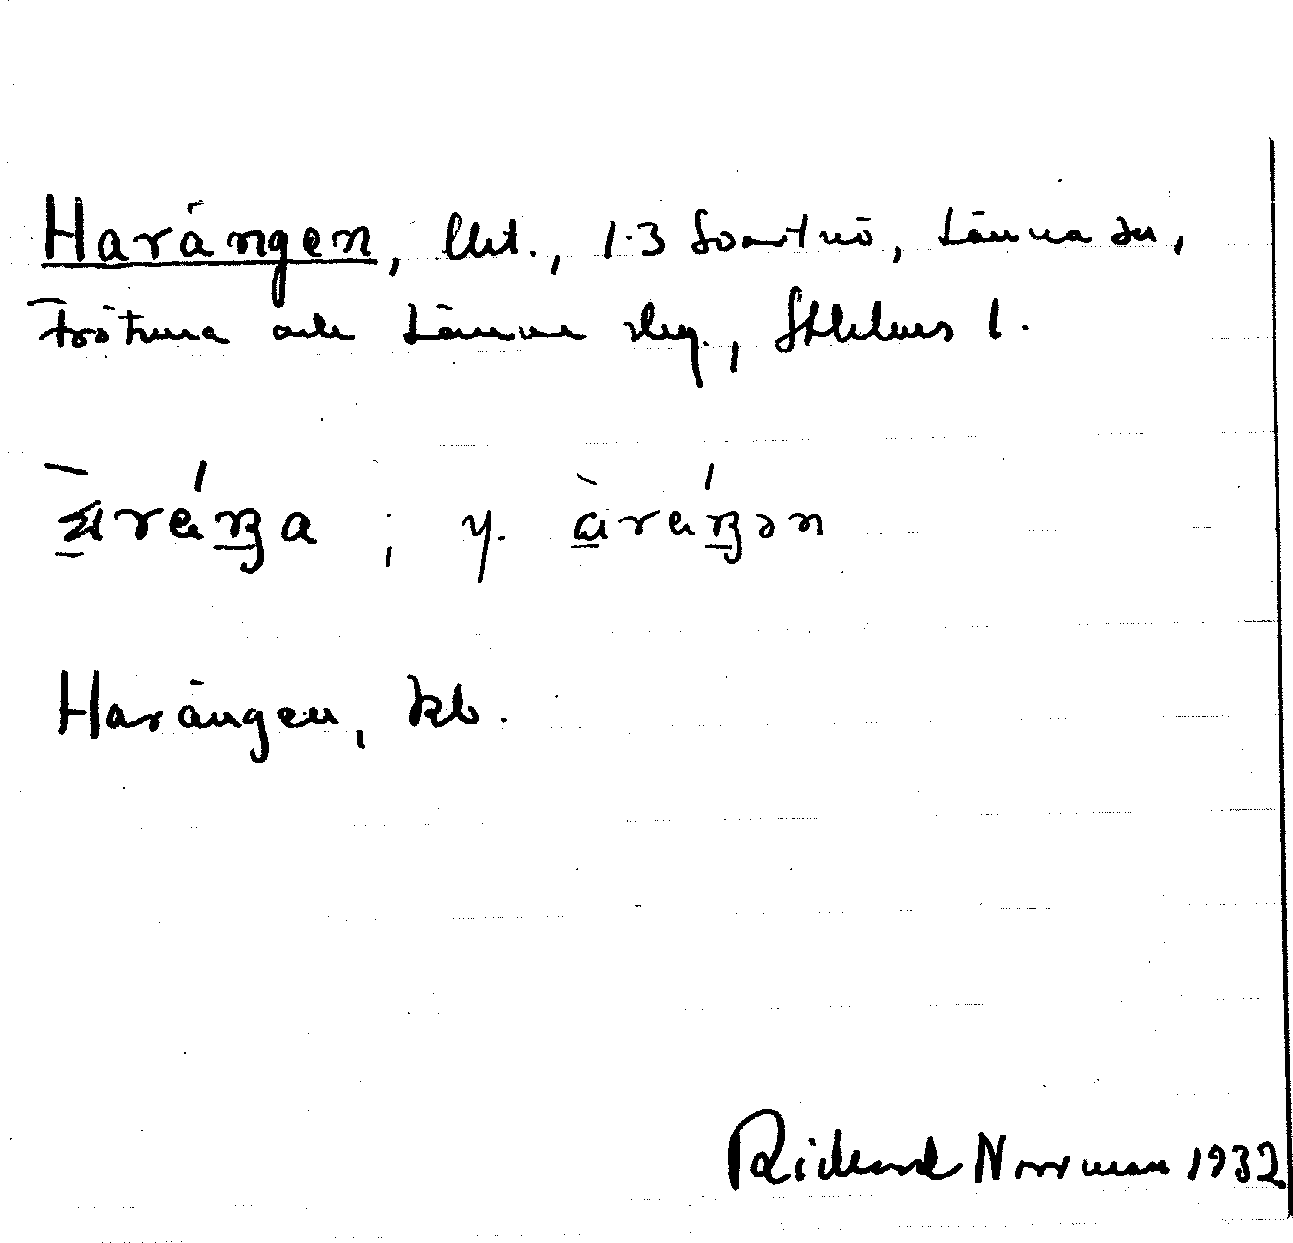 Harängen, lht., 1-3 Svartnö, Länna sn,
Frötuna och Länna skg., Sthlms l.
àréŋa ; y. àréŋən
Harängen, kb.
Rickard Norrman 1932